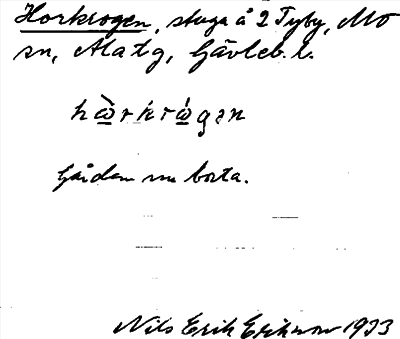 Horkrogen, stuga å 2 Tyby, Mo
sn, Ala tg, Gävleb. l.
hὼrkrώgen
Gården nu borta.
Nils Erik Eriksson 1933